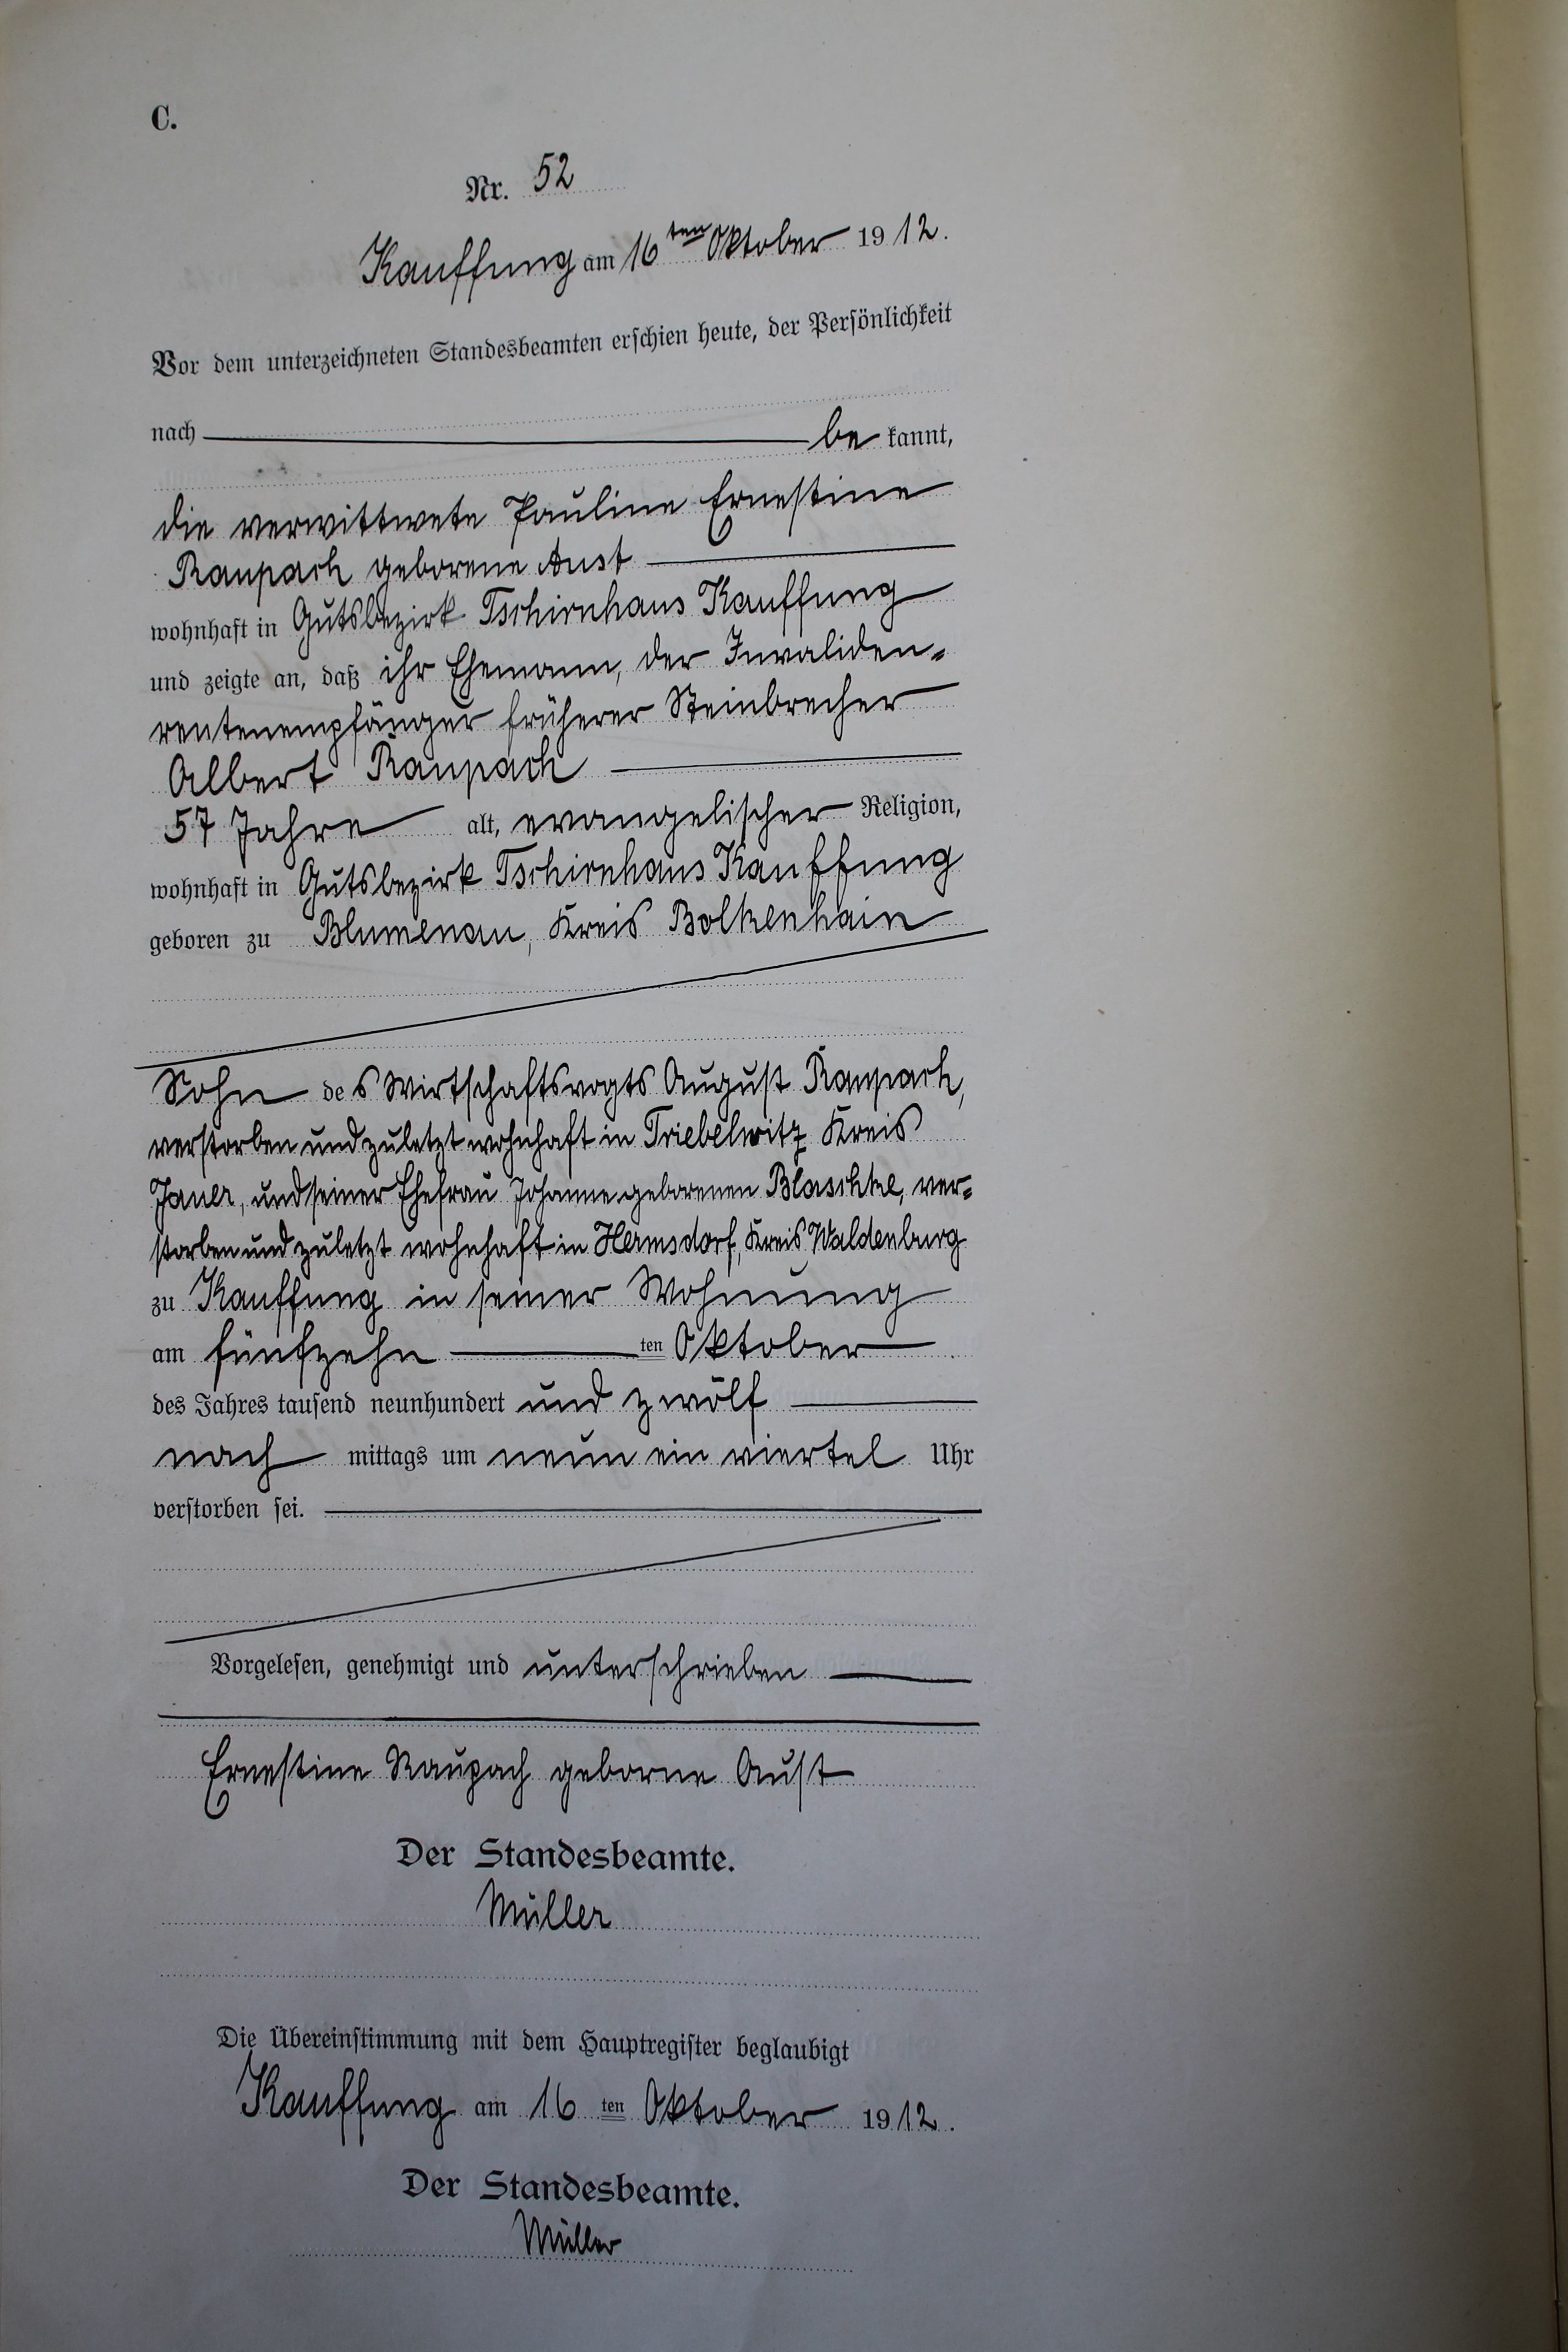 C.
Nr. 52
Kauffung am 16ten Oktober 1912.
Vor dem unterzeichneten Standesbeamten erschien heute, der Persönlichkeit
nach be kannt,
die verwittwete Pauline Ernestine
Raupach geborene Aust
wohnhaft in Gutsbezirk Tschirnhaus Kauffung
und zeigte an, daß ihr Ehemann, der Invaliden-
rentenempfänger früherer Steinbrecher
Albert Raupach
57 Jahre alt, evangelischer Religion,
wohnhaft in Gutsbezirk Tschirnhaus Kauffung
geboren zu Blumenau, Kreis Bolkenhain
Sohn des Wirtschaftsvogts August Raupach,
verstorben und zuletzt wohnhaft in Triebelwitz Kreis
Jauer, und seiner Ehefrau Johanne geborenen Blaschke, ver-
storben und zuletzt wohnhaft in Hermsdorf, Kreis Waldenburg
zu Kauffung in seiner Wohnung
am fünfzehn ten Oktober
des Jahres tausend neunhundert und zwölf
nach mittags um neun ein viertel Uhr
verstorben sei.
Vorgelesen, genehmigt und unterschrieben
Ernestine Raupach geborne Aust
Der Standesbeamte.
Müller
Die Übereinstimmung mit dem Hauptregister beglaubigt
Kauffung am 16 ten Oktober 1912.
Der Standesbeamte.
Müller